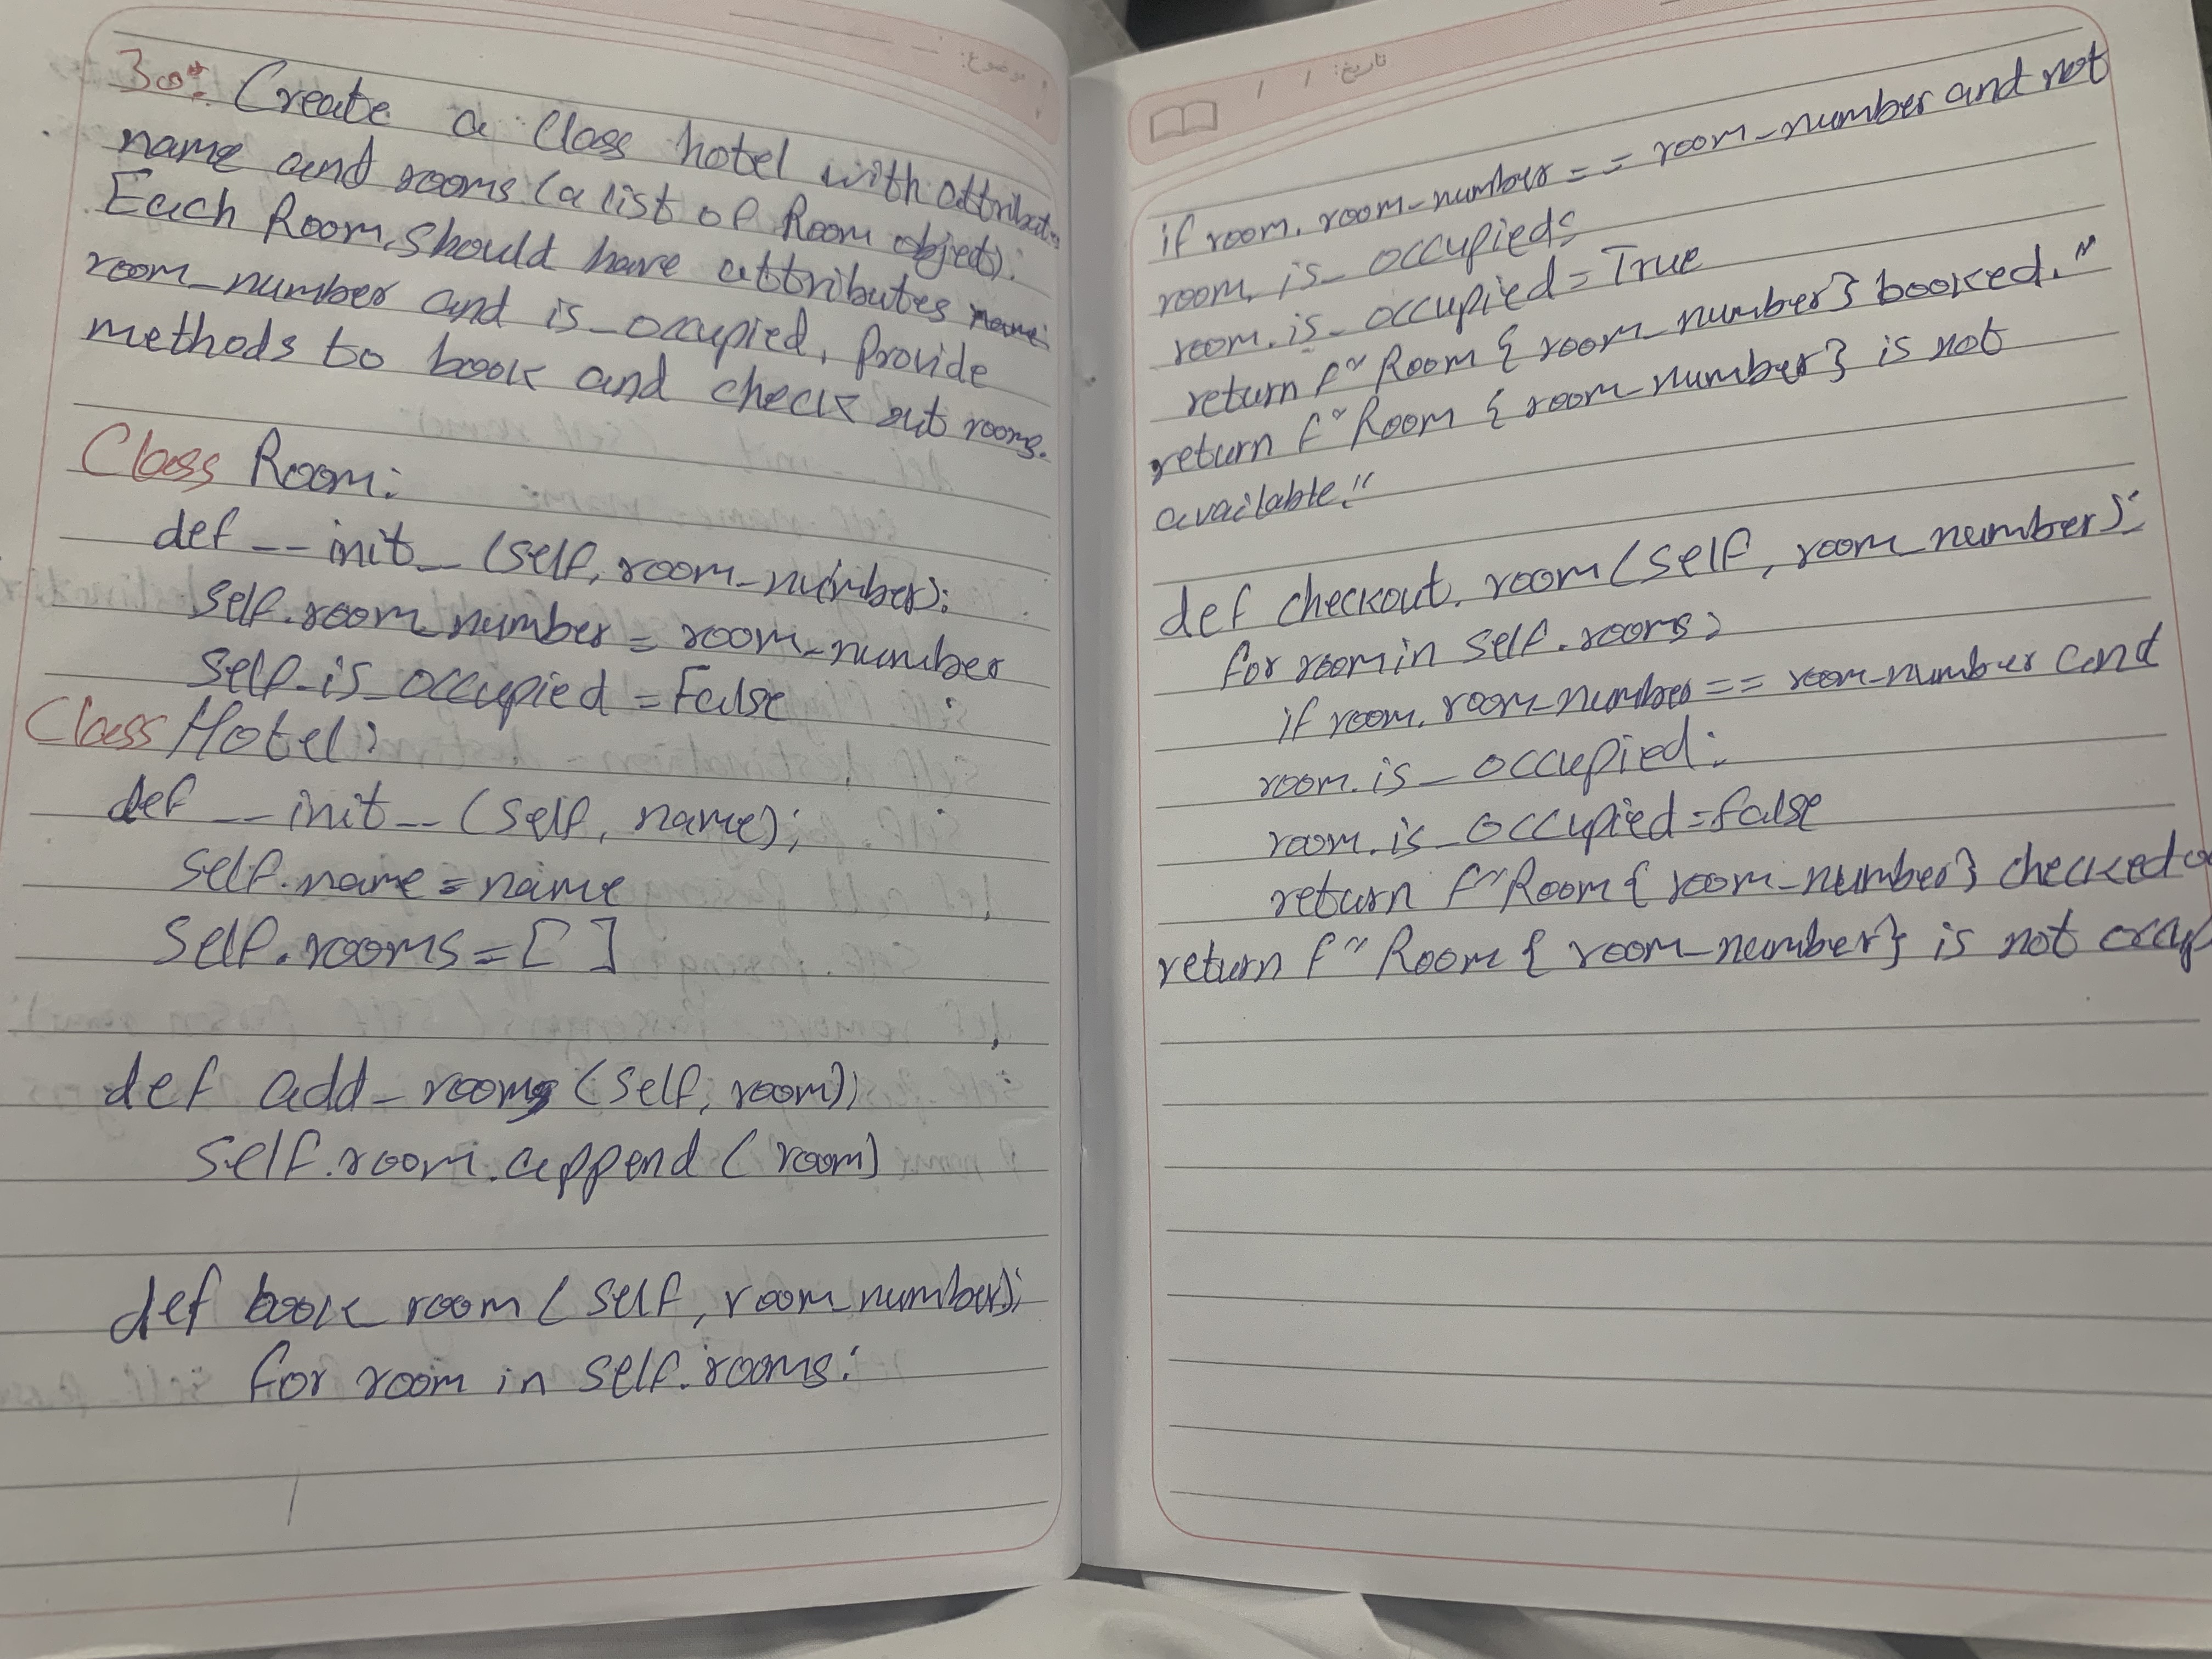 30: Create a Class hotel with attribut
name and rooms (a list of Room objects).
Each Room should have attributes name
room_number and is_occupied. Provide
methods to book and check out rooms.
Class Room:
def __init__(self, room_number):
self.room_number = room_number
self.is_occupied = False
Class Hotel:
def __init__(self, name):
self.name = name
self.rooms = [ ]
def add_room(self, room):
self.room.append(room)
def book_room(self, room_number):
for room in self.rooms:
تاريخ: / /
if room.room_number == room_number and not
room.is_occupied:
room.is_occupied = True
return f"Room {room_number} booked."
return f"Room {room_number} is not
available."
def checkout_room(self, room_number):
for room in self.rooms:
if room.room_number == room_number and
room.is_occupied:
room.is_occupied = False
return f"Room {room_number} checked o
return f"Room {room_number} is not occup